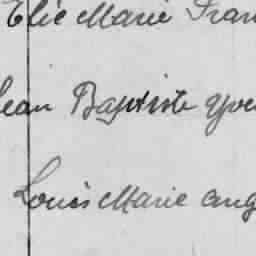 Elie Marie Fran
Jean Baptiste Yve
Louis Marie Aug